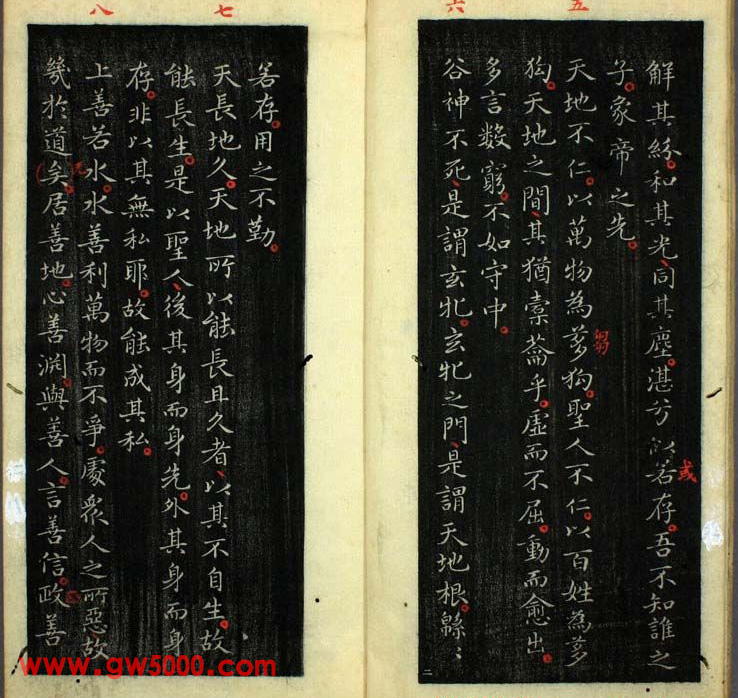 五
六
解其紛和其光同其塵湛兮似若存吾不知誰之
或
子象帝之先
天地不仁以萬物為芻狗聖人不仁以百姓為芻
芻
狗天地之間其猶橐籥乎虛而不屈動而愈出
多言數窮不如守中
谷神不死是謂玄牝玄牝之門是謂天地根緜〻
二
七
八
若存用之不勤
天長地久天地所以能長且久者以其不自生故
能長生是以聖人後其身而身先外其身而身
存非以其無私耶故能成其私
上善若水水善利萬物而不爭處衆人之所惡故
幾於道矣居善地心善淵與善人言善信政善
www.gw5000.com